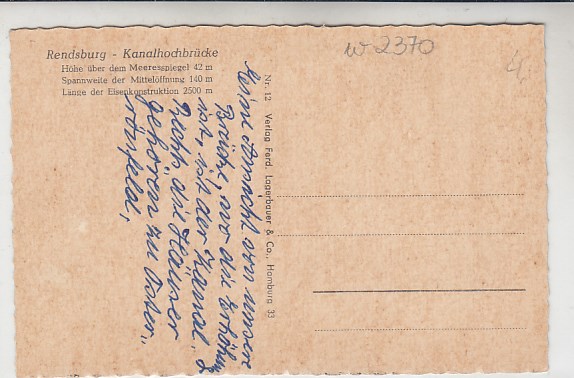 Rendsburg - Kanalhochbrücke
Höhe über dem Meeresspiegel 42 m
Spannweite der Mittelöffnung 140 m
Länge der Eisenkonstruktion 2500 m
w 2370
4,
Nr. 12 Verlag Ferd. Lagerbauer & Co., Hamburg 33
Eine Ansicht von unserer
Brücke, wo die Erhöhung
ist, ist der Kanal.
Rechts die Häuser
gehören zu Oster-
rönfeld.